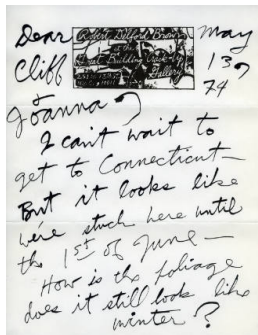 Dear
Robert Delford Brown
at the
Great Building Crack-up
Gallery
May
13,
74
Cliff
Joanna,
I can't wait to
get to Connecticut—
But it looks like
we're stuck here until
the 1st of June—
How is the foliage
does it still look like
winter?